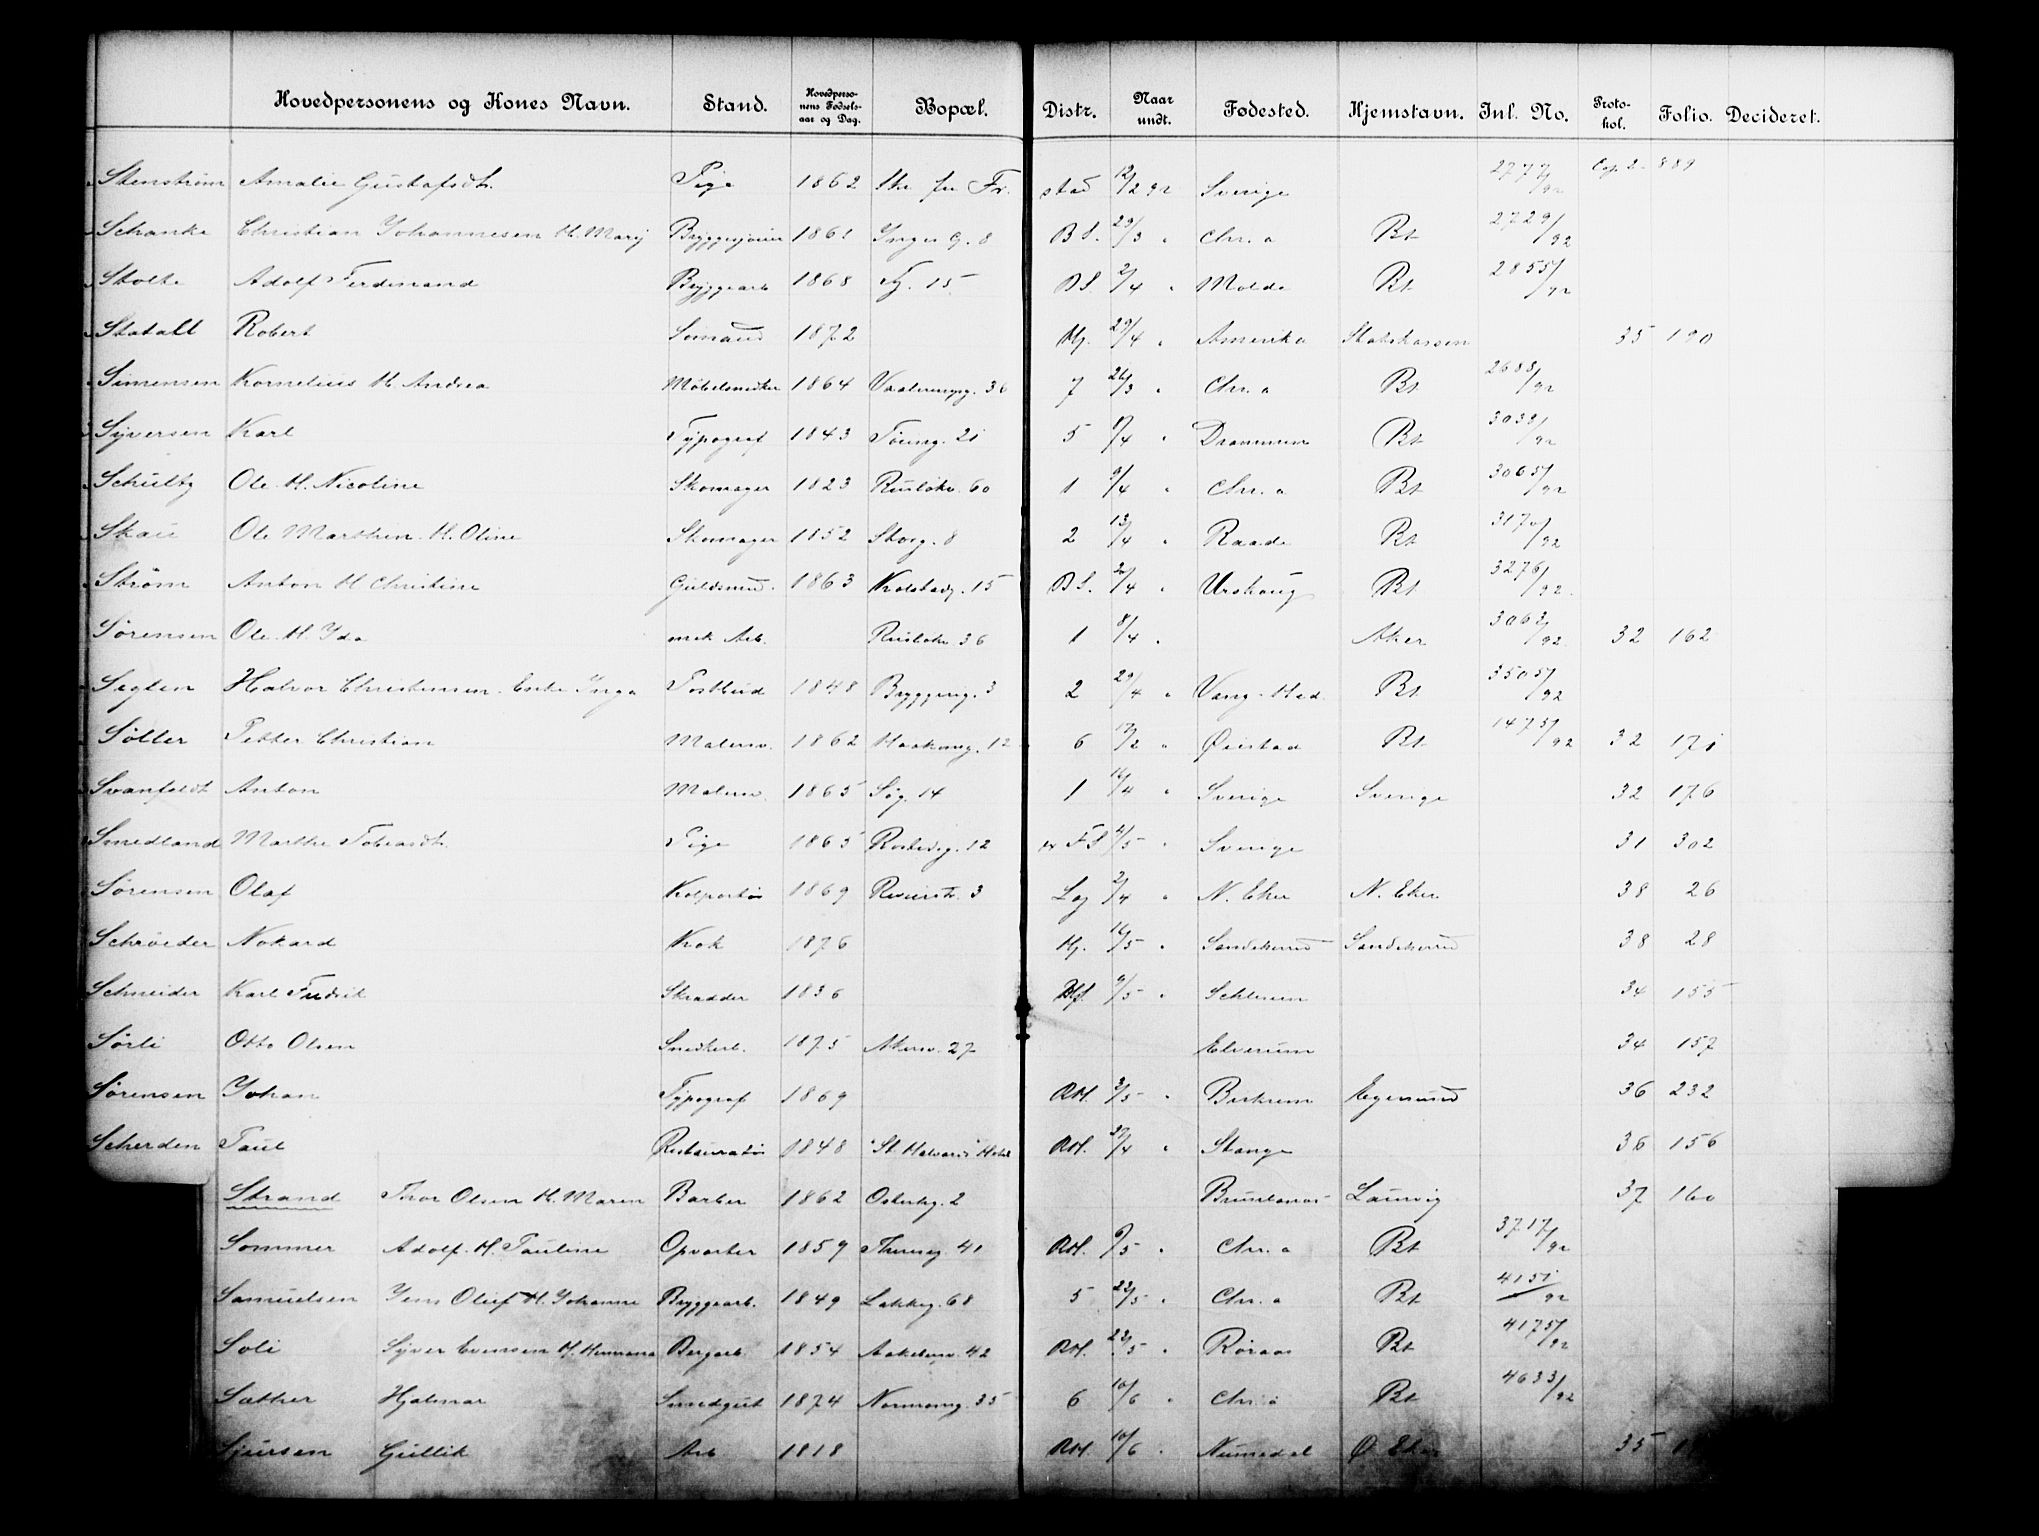 Hovedpersonens og Kones Navn. Stand. Hovedperso-nens Fødsels-aar og Dag. Bopæl. Distr. Naar undt. Fødested. Hjemstavn. Inl. No. Proto-kol. Folio. Decideret.
Stenstrøm Amalie Gustafsdt. Pige 1862 Fr. stad 12/2 92 Sverige 2777/92 Cop. 2 889
Schanke Christian Johannesen H. Mary 1861 Inges G. 8 BS. 29/3 " Chr. a Bt 2729/92
Stolte Adolf Ferdinand Bryggearb 1868 15 BS. 2/4 " Molde Bt 2855/92
Robert Sømand 1872 Hj. 29/4 " Amerika Statskassen 35 190
Simensen Kornelius H. Andrea Møbelsnedker 1864 Vaalerengg. 36 7 26/3 " Chr. a Bt 2688/92
Syversen Karl Typograf 1843 Tøieng. 21 5 /4 " Drammen Bt 3033/92
Schultz Ole H. Nicoline Skomager 1823 Rusløkv. 60 1 9/4 " Chr. a Bt 3065/92
Skau Ole Marthin H. Oline Skomager 1852 Storg. 8 2 13/4 " Raade Bt 3170/92
Strøm Anton H Christine Guldsmed. 1863 Kolstadg. 15 BS. 20/4 " Urskoug Bt 3276/92
Sørensen Ole H. Ida mek Arb. Rusløkv. 36 1 8/4 " Aker 3063/92 32 162
Halvor Christensen Enke Inga Postbud 1848 Bryggeng. 3 2 29/4 " Vang Hed. Bt 3505/92
Søller Petter Christian Malersv. 1862 Haakong. 12 6 /2 " Øiestad Bt 1475/92 32 171
Svanfeldt Anton Malersv. 1865 Søg. 14 1 16/4 " Sverige Sverige 32 176
Smedland Marthe Tobiasdt. Pige 1865 12 FS 4/5 " Sverige 31 302
Sørensen Olaf Kolportør 1869 Revierstr. 3 Lag 2/4 " N. Eker N. Eker 38 26
Schrøeder Nokard Kok 1876 Hj. 16/5 " Sandeherred Sandeherred 38 28
Schneider Karl Fredrik Skrædder 1836 6/5 " 34 155
Sørli Otto Olsen Snedkerl. 1875 Akersv. 27 Elverum 34 157
Sørensen Johan Typograf 1869 RH. 3/5 " Birkrem Egersund 36 232
Scherden Paul Restauratør 1848 "St. Halvards" Hotel RH. 27/4 " Stange 36 156
Strand Thor Olsen H. Maren Barber 1862 Osterhg. 2 Brunlanæs Laurvig 37 160
Sommer Adolf H. Pauline Opvarter 1859 Thereseg 41 RH. 6/5 " Chr. a Bt 3717/92
Samuelsen Jens Oluf H. Johanne Bryggearb. 1849 Lakkeg. 68 5 22/5 " Chr. a Bt 4151/92
Soli Syver Evensen H. Hermana Bergarb. 1854 Aakebergv. 42 RH. 23/5 " Røraas Bt 4175/92
Sæther Hjalmar Smedgut 1874 Normanng. 35 6 10/6 " Chr. a Bt 4633/92
Sjursen Gullik Arb 1818 RH. 10/6 " Numedal Ø. Eker 35